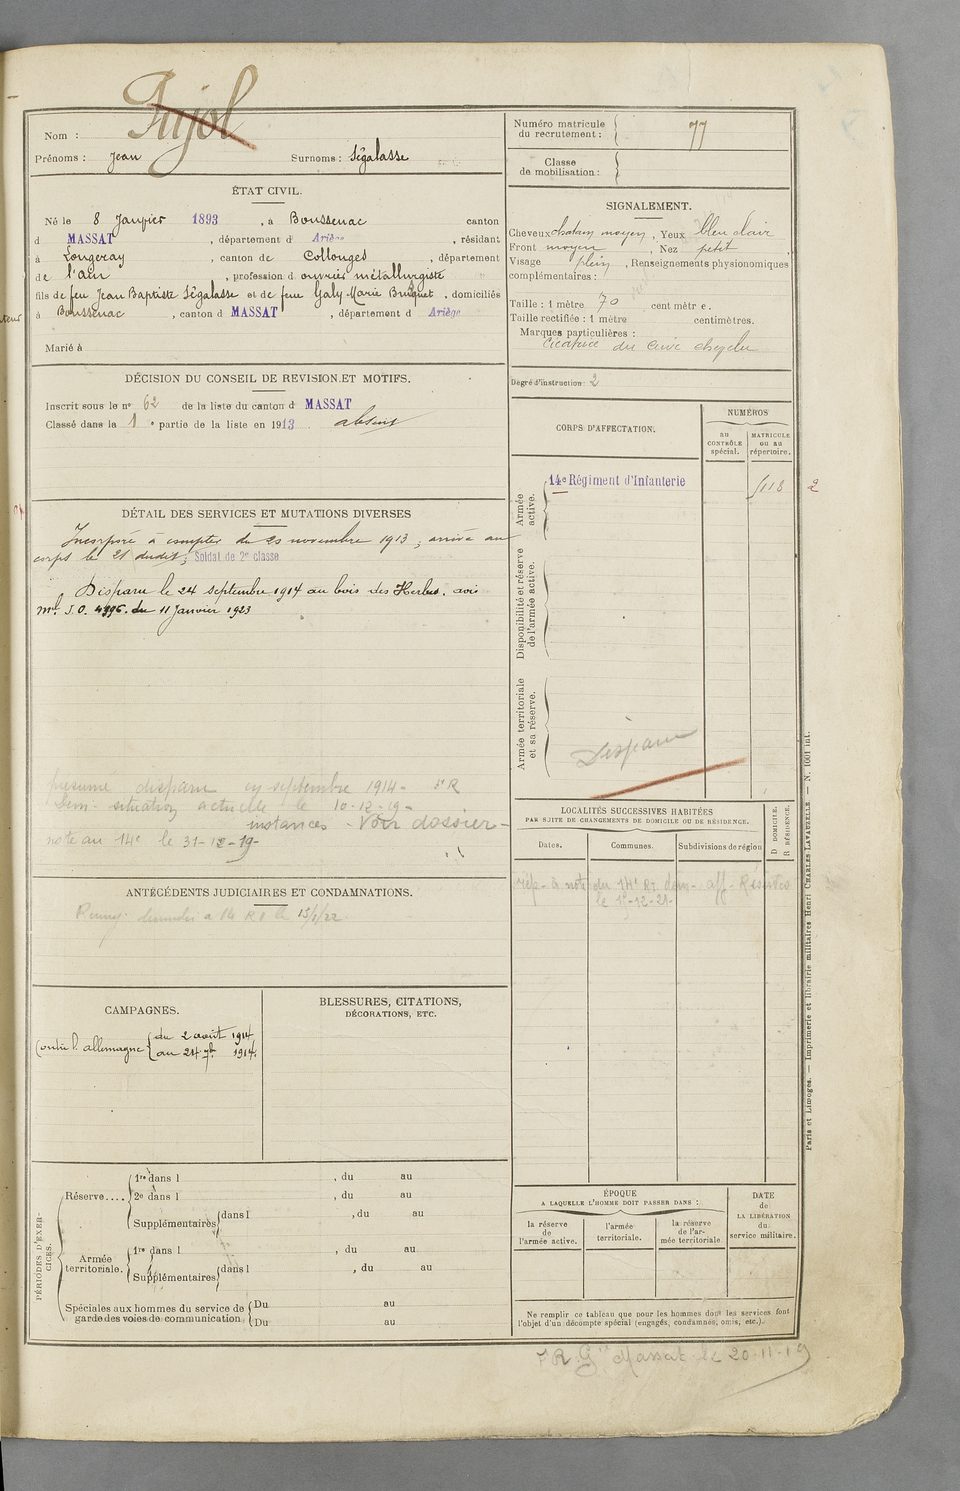 Nom : Pujol
Prénoms : Jean Surnoms : Ségalasse
ÉTAT CIVIL.
Né le 8 Janvier 1893, à Boussenac canton
d MASSAT, département d Ariège, résidant
à Longeray, canton de Collonges, département
de l'ain, profession d ouvrier métallurgiste
fils de feu Jean Baptiste Ségalasse et de feue Galy Marie Briquet, domiciliés
à Boussenac, canton d MASSAT, département d Ariège
Marié à
DÉCISION DU CONSEIL DE REVISION ET MOTIFS.
Inscrit sous le nº 62 de la liste du canton d MASSAT
Classé dans la 1 e partie de la liste en 1913. absent
DÉTAIL DES SERVICES ET MUTATIONS DIVERSES
Incorporé à compter du 20 novembre 1913, arrivé au
corps le 21 dudit, Soldat de 2e classe
Disparu le 24 septembre 1914 au bois des Herbus. avis
mel J.O. 4996. du 11 Janvier 1923
présumé disparu en septembre 1914 -
Dem. situation actuelle le 10-12-19-
instances - Voir dossier -
note au 14e le 31-12-19-
ANTÉCÉDENTS JUDICIAIRES ET CONDAMNATIONS.
a 14 RI le 15/1/22
CAMPAGNES.
Contre l'allemagne { du 2 août 1914
au 24 7bre 1914.
BLESSURES, CITATIONS,
DÉCORATIONS, ETC.
PÉRIODES D'EXERCICES.
Réserve.... { 1re dans 1 , du au
2e dans 1 , du au
Supplémentaires { dans 1 , du au
Armée territoriale. { 1re dans 1 , du au
Supplémentaires { dans 1 , du au
Spéciales aux hommes du service de { Du au
garde des voies de communication { Du au
Numéro matricule
du recrutement : { 77
Classe
de mobilisation : {
SIGNALEMENT.
Cheveux chatain moyen, Yeux bleu clair
Front moyen, Nez petit
Visage plein, Renseignements physionomiques
complémentaires :
Taille : 1 mètre 70 centimètre.
Taille rectifiée : 1 mètre centimètres.
Marques particulières :
cicatrice du cuir chevelu
Degré d'instruction : 2
CORPS D'AFFECTATION.
NUMÉROS
au
CONTRÔLE
spécial.
MATRICULE
ou au
répertoire.
Armée
active.
14e Régiment d'Infanterie
2
Disponibilité et réserve
de l'armée active.
Armée territoriale
et sa réserve.
Disparu
LOCALITÉS SUCCESSIVES HABITÉES
PAR SUITE DE CHANGEMENTS DE DOMICILE OU DE RÉSIDENCE.
Dates.
Communes.
Subdivisions de région
D DOMICILE.
R RÉSIDENCE.
rép- à note du 14e RI dem- aff-
ÉPOQUE
A LAQUELLE L'HOMME DOIT PASSER DANS :
la réserve
de
l'armée active.
l'armée
territoriale.
la réserve
de l'ar-
mée territoriale.
DATE
de
LA LIBÉRATION
du
service militaire.
Ne remplir ce tableau que pour les hommes dont les services font
l'objet d'un décompte spécial (engagés, condamnés, omis, etc.).
Massat le 20-11-19
Paris et Limoges. — Imprimerie et librairie militaires Henri CHARLES LAVAUZELLE — N. 1001 int.